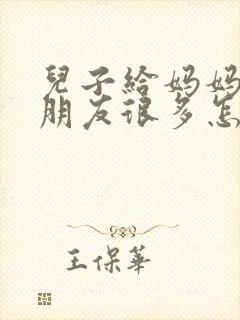 兒子給妈妈
朋友很多怎
王保華